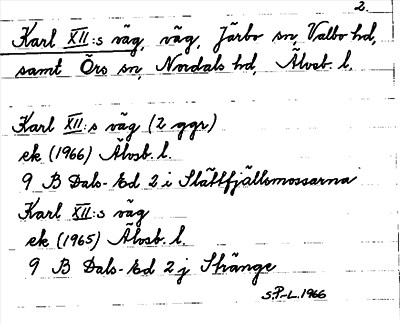 2.
Karl XII:s väg, väg, Järbo sn, Valbo hd,
samt Örs sn, Nordals hd, Älvsb. l.
Karl XII:s väg (2 ggr)
ek (1966) Älvsb. l.
9 B Dals-Ed 2 i Slättfjällsmossarna
Karl XII:s väg
ek (1965) Älvsb. l.
9 B Dals-Ed 2 j Stränge
S.P-L. 1966